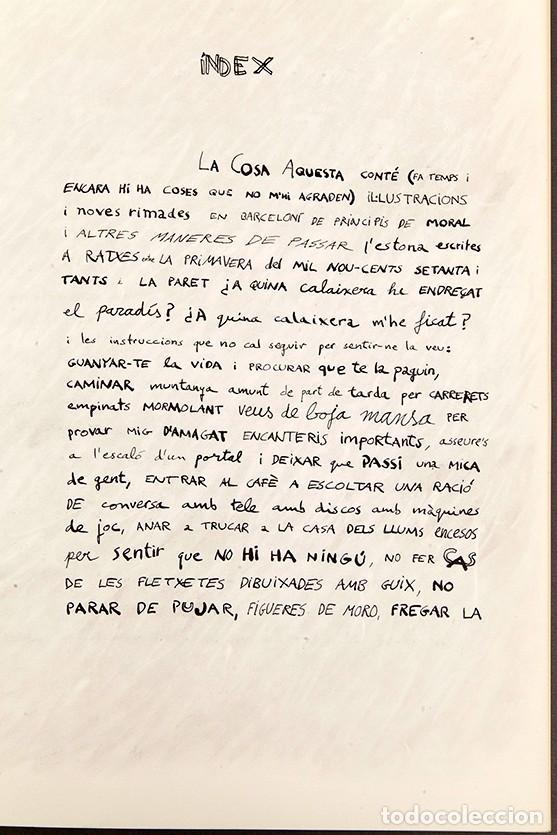 ÍNDEX
LA COSA AQUESTA CONTÉ (FA TEMPS i
ENCARA HI HA COSES QUE NO M'HI AGRADEN) IL·LUSTRACIONS
i noves rimades EN BARCELONÍ DE PRINCIPIS DE MORAL
i ALTRES MANERES DE PASSAR l'estona escrites
A RATXES entre LA PRIMAVERA del MIL NOU-CENTS SETANTA i
TANTS i LA PARET ¿A QUINA calaixera he ENDREÇAT
el paradís? ¿A quina calaixera m'he ficat?
i les instruccions que no cal seguir per sentir-ne la veu:
GUANYAR-TE la VIDA i PROCURAR que te la paguin,
CAMINAR muntanya amunt de part de tarda per CARRERETS
empinats MORMOLANT veus de boja mansa PER
provar MIG D'AMAGAT ENCANTERIS importants, asseure's
a l'escaló d'un portal i DEIXAR que PASSI una MICA
de gent, ENTRAR AL CAFÈ A ESCOLTAR UNA RACIÓ
DE conversa amb tele amb discos amb màquines
de joc, ANAR a TRUCAR a LA CASA DELS LLUMS encesos
per sentir que NO HI HA NINGÚ, NO FER CAS
DE LES FLETXETES DIBUIXADES AMB GUIX, NO
PARAR DE PUJAR, FIGUERES DE MORO, FREGAR LA
todocoleccion